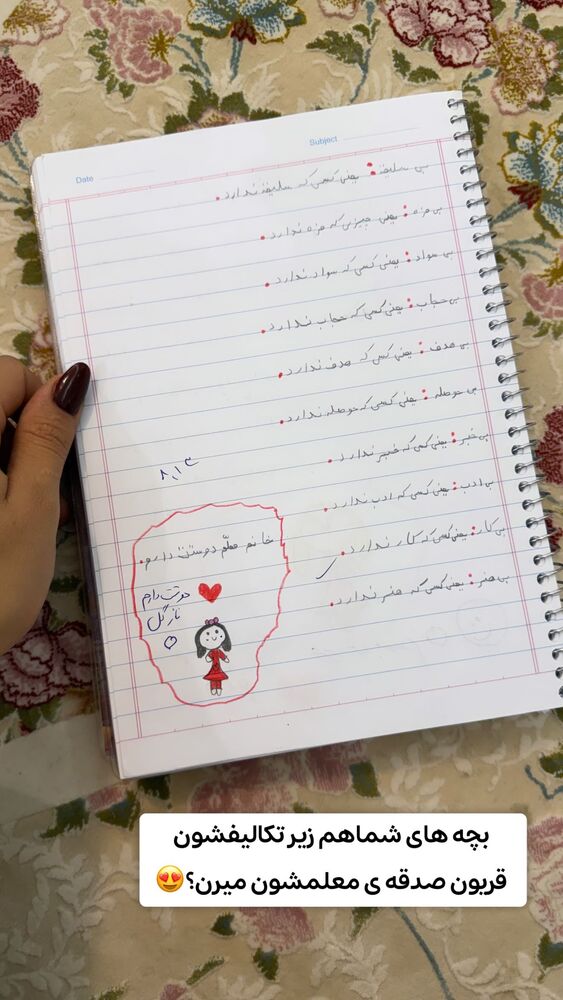 Subject
Date
بی سلیقه: یعنی کسی که سلیقه ندارد.
بی مزه: یعنی چیزی که مزه ندارد.
بی سواد: یعنی کسی که سواد ندارد.
بی حجاب: یعنی کسی که حجاب ندارد.
بی هدف: یعنی کسی که هدف ندارد.
بی حوصله: یعنی کسی که حوصله ندارد.
بی خبر: یعنی کسی که خبر ندارد.
بی ادب: یعنی کسی که ادب ندارد.
بی کار: یعنی کسی که کار ندارد.
بی هنر: یعنی کسی که هنر ندارد.
خانم معلّم دوستت دارم.
دوستت دارم
نازگل
بچه های شماهم زیر تکالیفشون
قربون صدقه ی معلمشون میرن؟😍